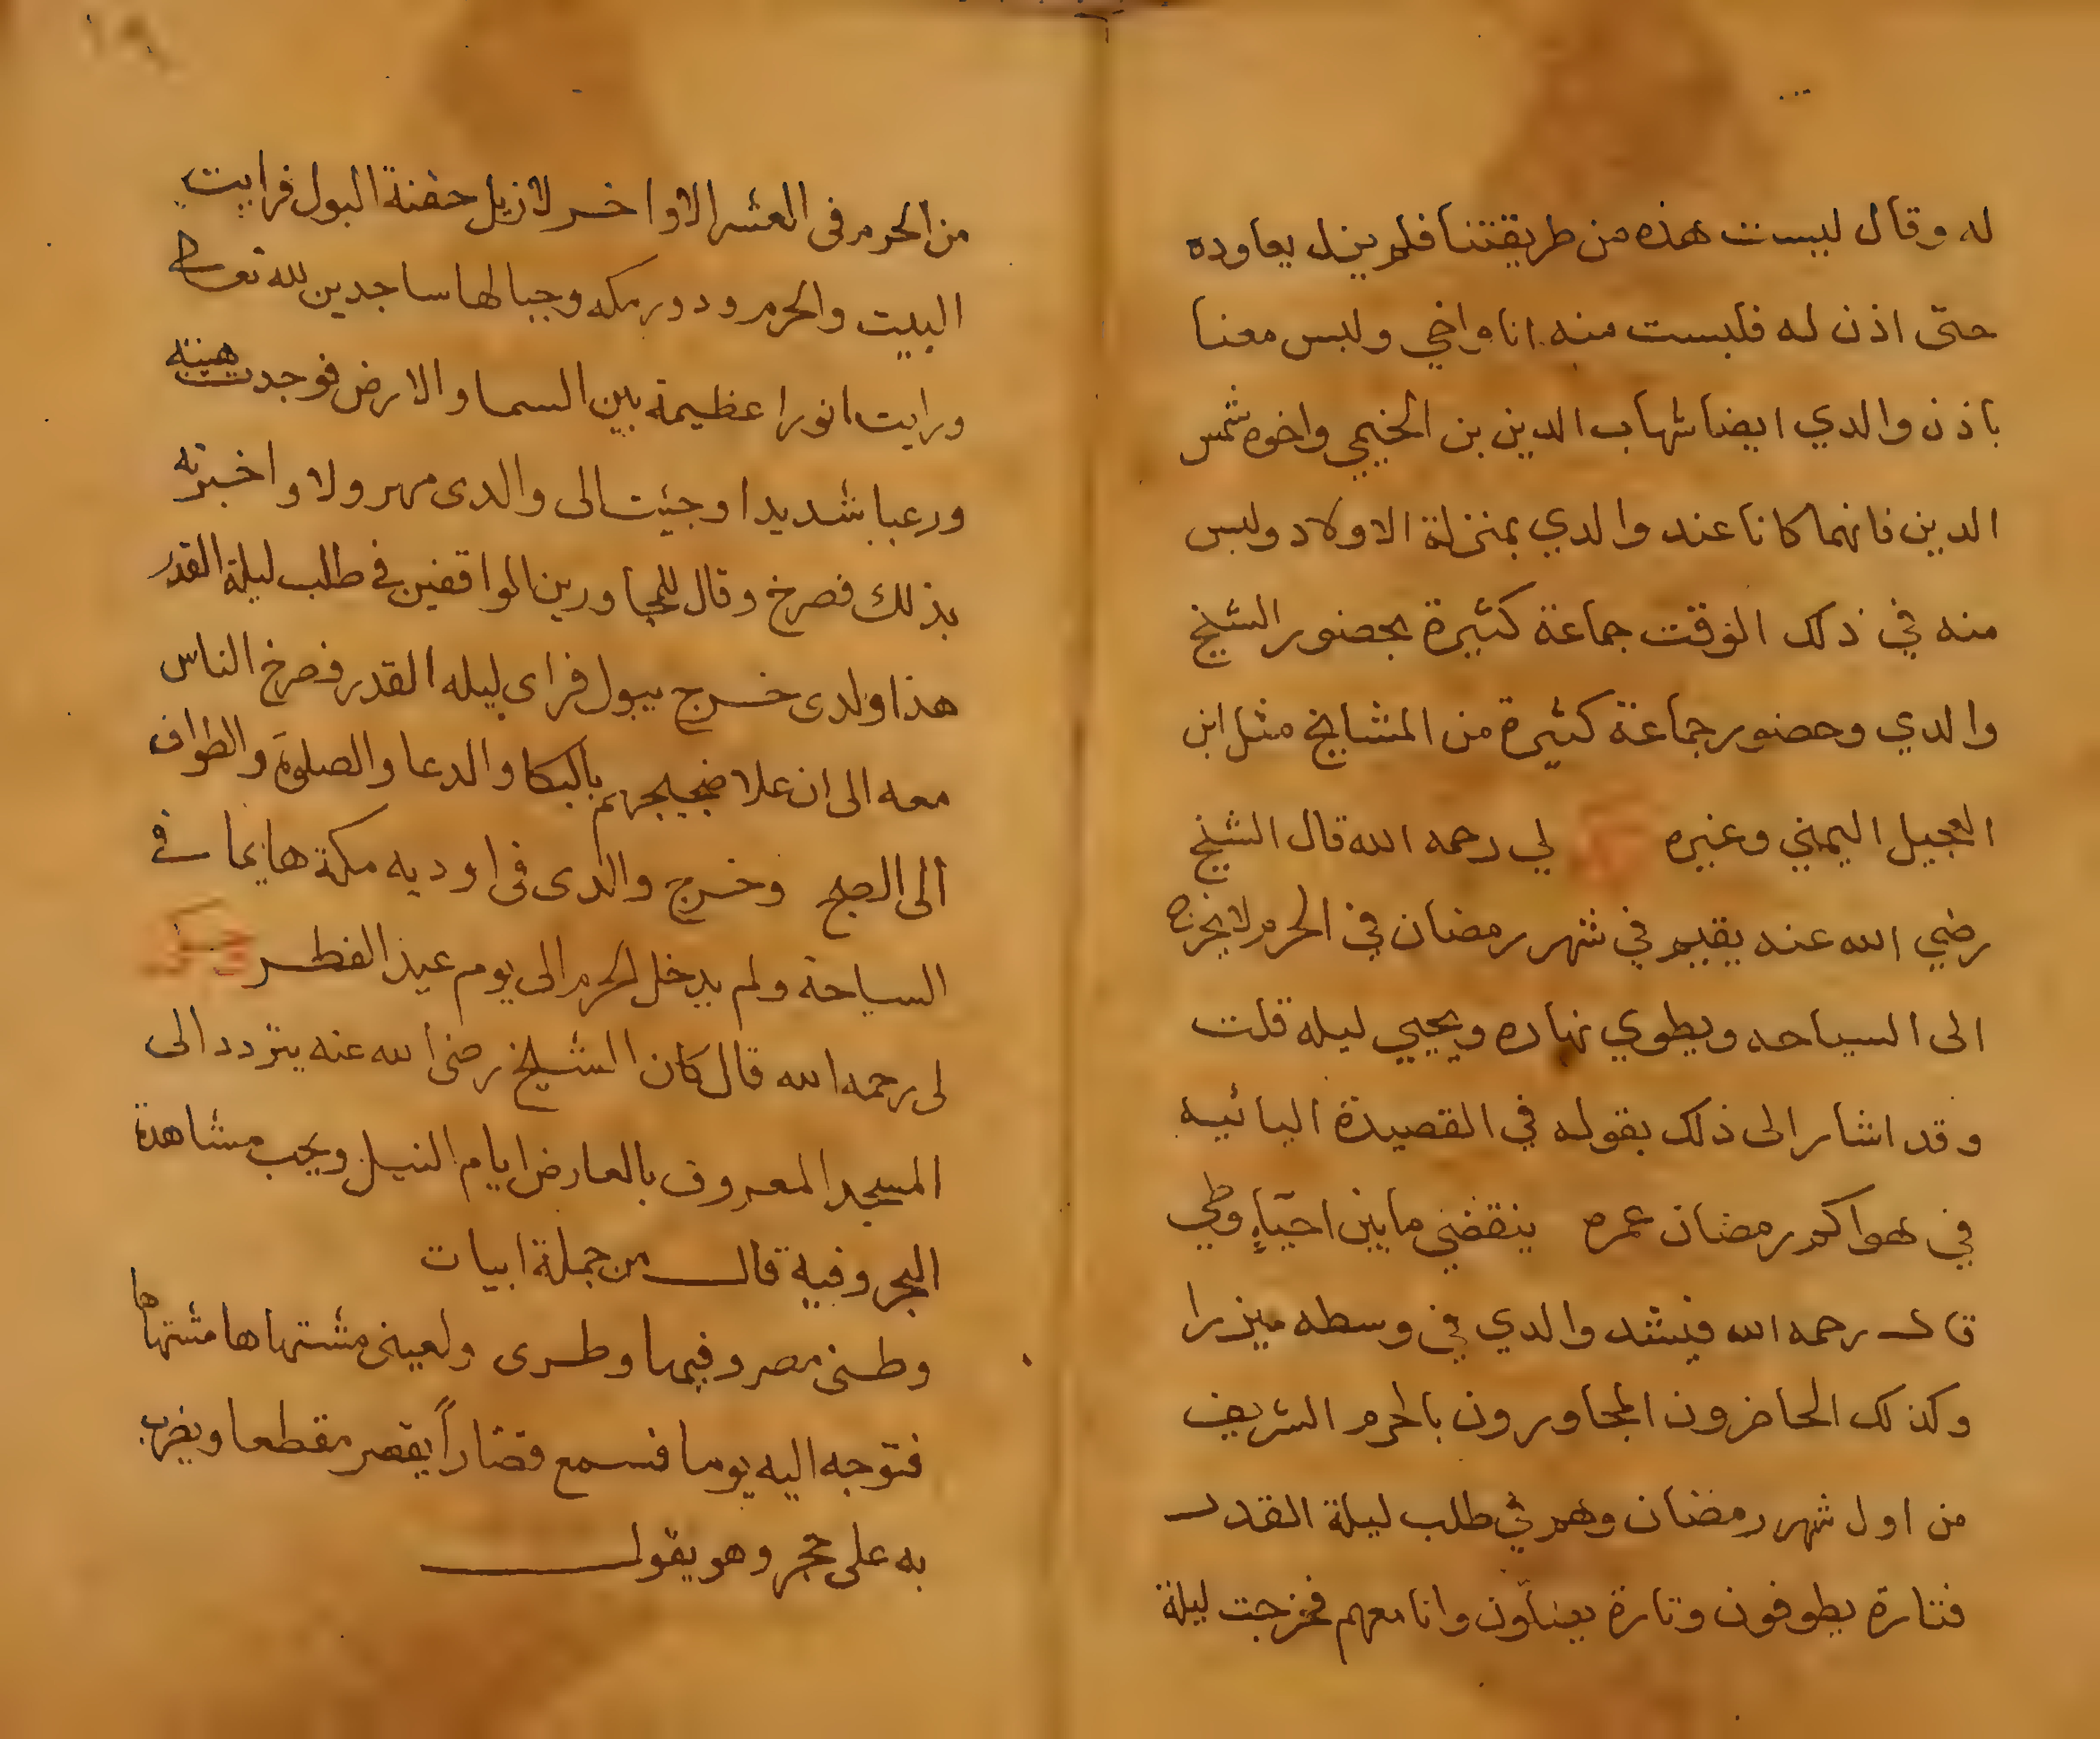 له وقال ليست هذه من طريقتنا فلم يزل يعاوده
حتى اذن له فلبست منه انا واخي ولبس معنا
باذن والدي ايضا شهاب الدين بن الخيمي واخوه شمس
الدين فانهما كانا عند والدي بمنزلة الاولاد ولبس
منه في ذلك الوقت جماعة كثيرة بحضور الشيخ
والدي وحضور جماعة كثيرة من المشايخ مثل ابن
العجيل اليمني وغيره لي رحمه الله قال الشيخ
رضي الله عنه يقيم في شهر رمضان في الحرم لا يخرج
الى السياحه ويطوي نهاره ويحيي ليله قلت
وقد اشار الى ذلك بقوله في القصيدة اليائيه
في هواكم رمضان عمره ينقضي ما بين احيآءٍ وطي
قال رحمه الله فيشد والدي في وسطه ميزرا
وكذلك الحاضرون المجاورون بالحرم الشريف
من اول شهر رمضان وهم في طلب ليلة القدر
فتارة يطوفون وتارة يصلّون وانا معهم فخرجت ليلة
١٨
من الحرم في العشر الاواخر لازيل حقنة البول فرايت
البيت والحرم ودور مكه وجبالها ساجدين لله تعالى
ورايت انورا عظيمة بين السما والارض فوجدت هيبته
ورعبا شديدا وجئت الى والدى مهرولا واخبرته
بذلك فصرخ وقال للمجاورين الواقفين في طلب ليلة القدر
هذا ولدى خرج يبول فراى ليله القدر فصرخ الناس
معه الى ان علا ضجيجهم بالبكا والدعا والصلوة والطواف
الى الصبح وخرج والدى فى اوديه مكة هايما في
السياحة ولم يدخل الحرم الى يوم عيد الفطر وحكى
لى رحمه الله قال كان الشيخ رضى الله عنه يتردد الى
المسجد المعروف بالعارض ايام النيل ويحب مشاهدة
البحر وفيه قال من جملة ابيات
وطنى مصر وفيها وطرى ولعينى مشتهاها مشتهاها
فتوجه اليه يوما فسمع قصّاراً يقصر مقطعا ويضرب
به على حجر وهو يقول